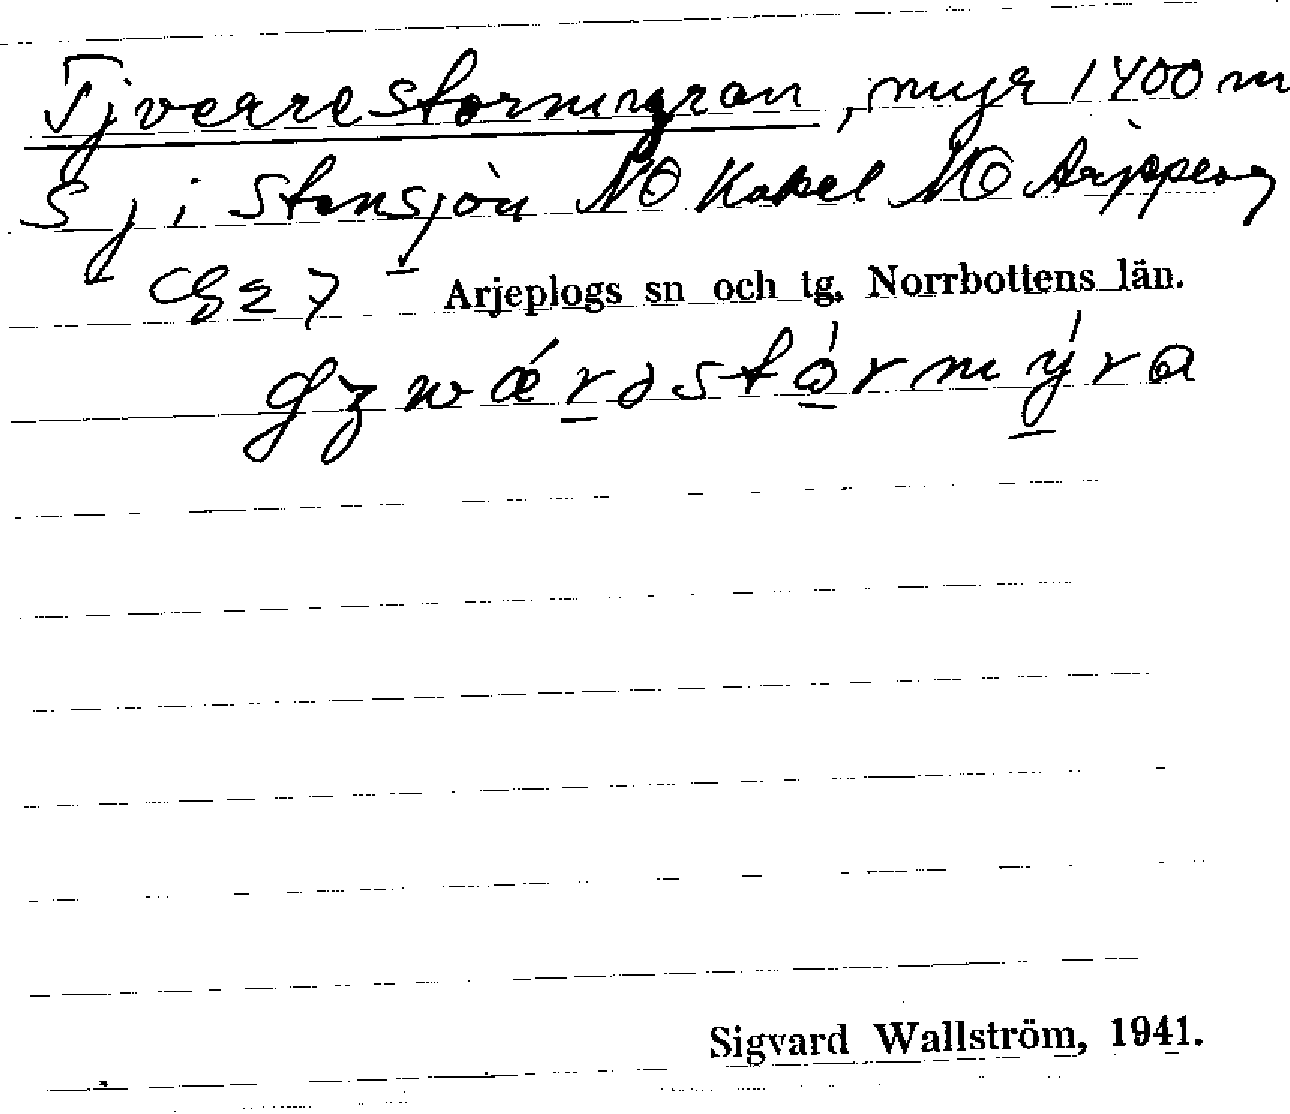 Tjverrestormyran, myr 1400 m
S j i Stensjön NO Kakel NO Arjeplog
7 Arjeplogs sn och tg. Norrbottens län.
Sigvard Wallström, 1941.